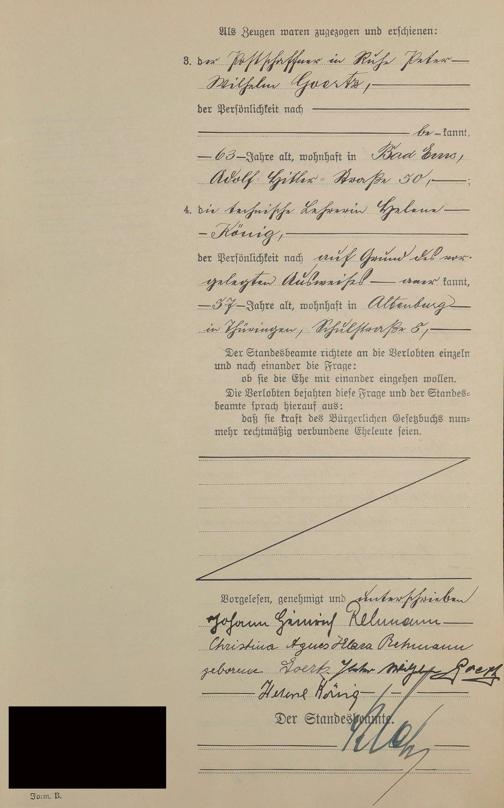 Als Zeugen waren zugezogen und erschienen:
3. der Postschaffner in Ruhe Peter
Wilhelm Goertz,
der Persönlichkeit nach
be-kannt,
63 Jahre alt, wohnhaft in Bad Ems,
Adolf-Hitler-Straße 50,
4. die technische Lehrerin Helene
König,
der Persönlichkeit nach auf Grund des vor-
gelegten Ausweises aner kannt,
57 Jahre alt, wohnhaft in Altenburg
in Thüringen, Schulstraße 5,
Der Standesbeamte richtete an die Verlobten einzeln
und nach einander die Frage:
ob sie die Ehe mit einander eingehen wollen.
Die Verlobten bejahten diese Frage und der Standes-
beamte sprach hierauf aus:
daß sie kraft des Bürgerlichen Gesetzbuchs nun-
mehr rechtmäßig verbundene Eheleute seien.
Vorgelesen, genehmigt und unterschrieben
Johann Heinrich Rehmann
Christina Agnes Klara Rehmann
geborene Goertz. Peter Wilhelm Goertz
Helene König
Der Standesbeamte.
Form. B.